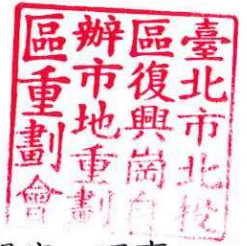 臺北市北投
區復興崗自
辦市地重劃
區重劃會